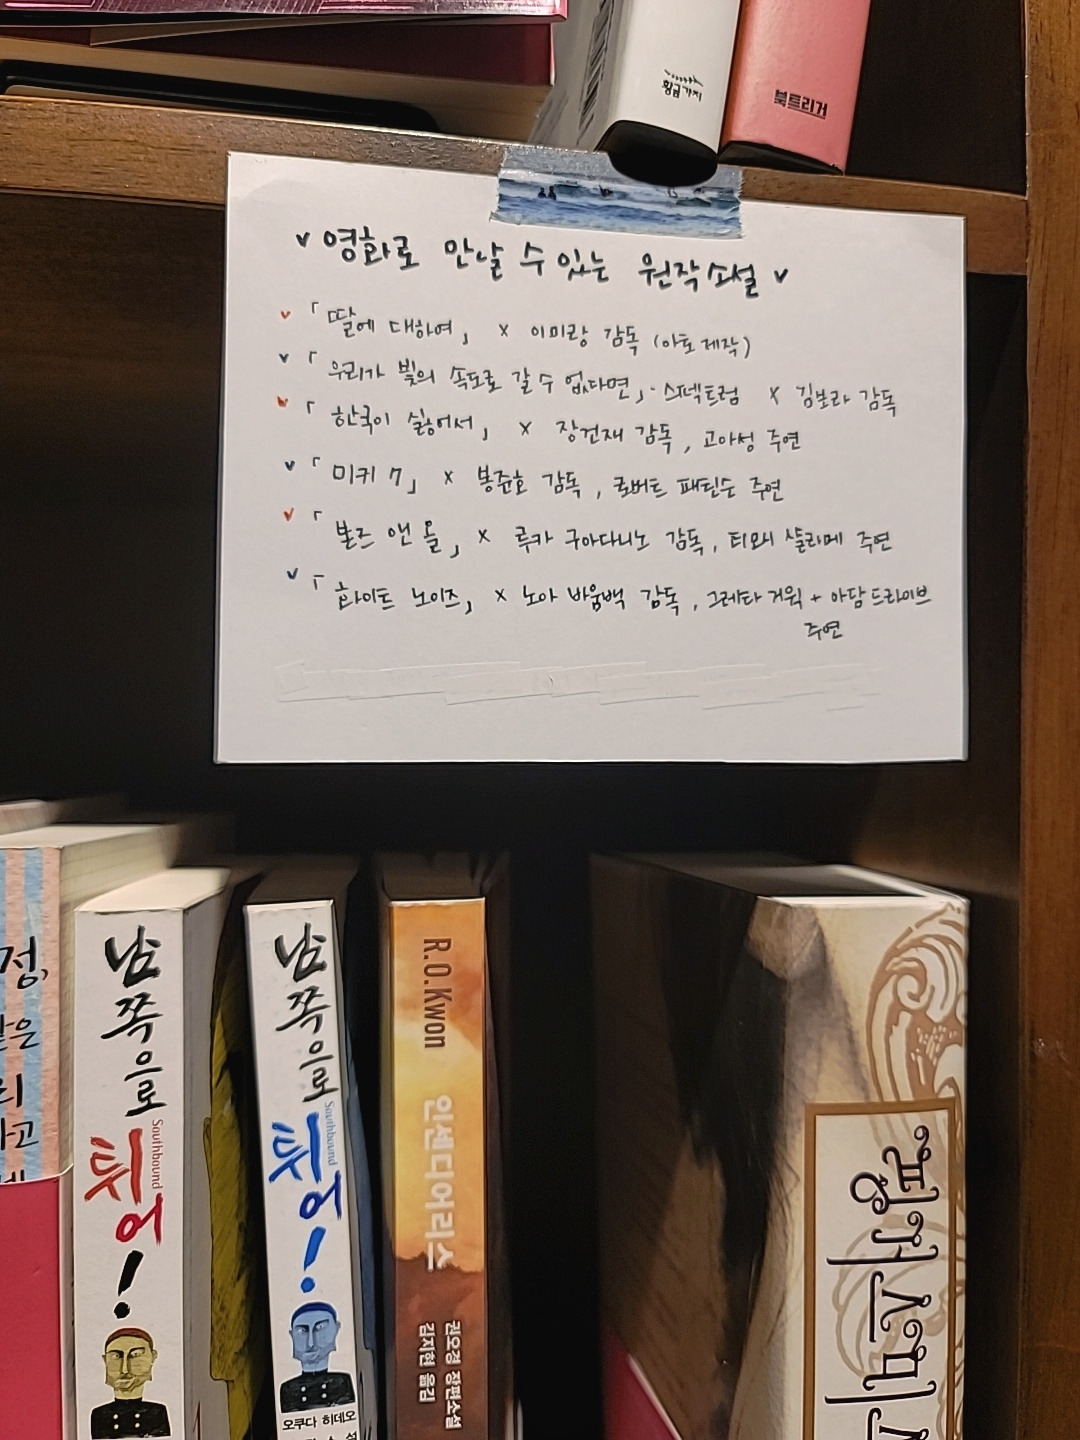 황금가지
북트리거
v 영화로 만날 수 있는 원작소설 v
v 「딸에 대하여」 x 이미랑 감독 (아토 제작)
v 「우리가 빛의 속도로 갈 수 없다면」· 스펙트럼 x 김보라 감독
v 「한국이 싫어서」 x 장건재 감독, 고아성 주연
v 「미키 7」 x 봉준호 감독, 로버트 패틴슨 주연
v 「본즈 앤 올」 x 루카 구아다니노 감독, 티모시 샬라메 주연
v 「화이트 노이즈」 x 노아 바움백 감독, 그레타 거윅 + 아담 드라이브
주연
정,
같은
리
남쪽으로 튀어!
Southbound
남쪽으로 튀어!
Southbound
오쿠다 히데오
R.O.Kwon
인센디어리스
권오경 장편소설
김지현 옮김
핑거스미스